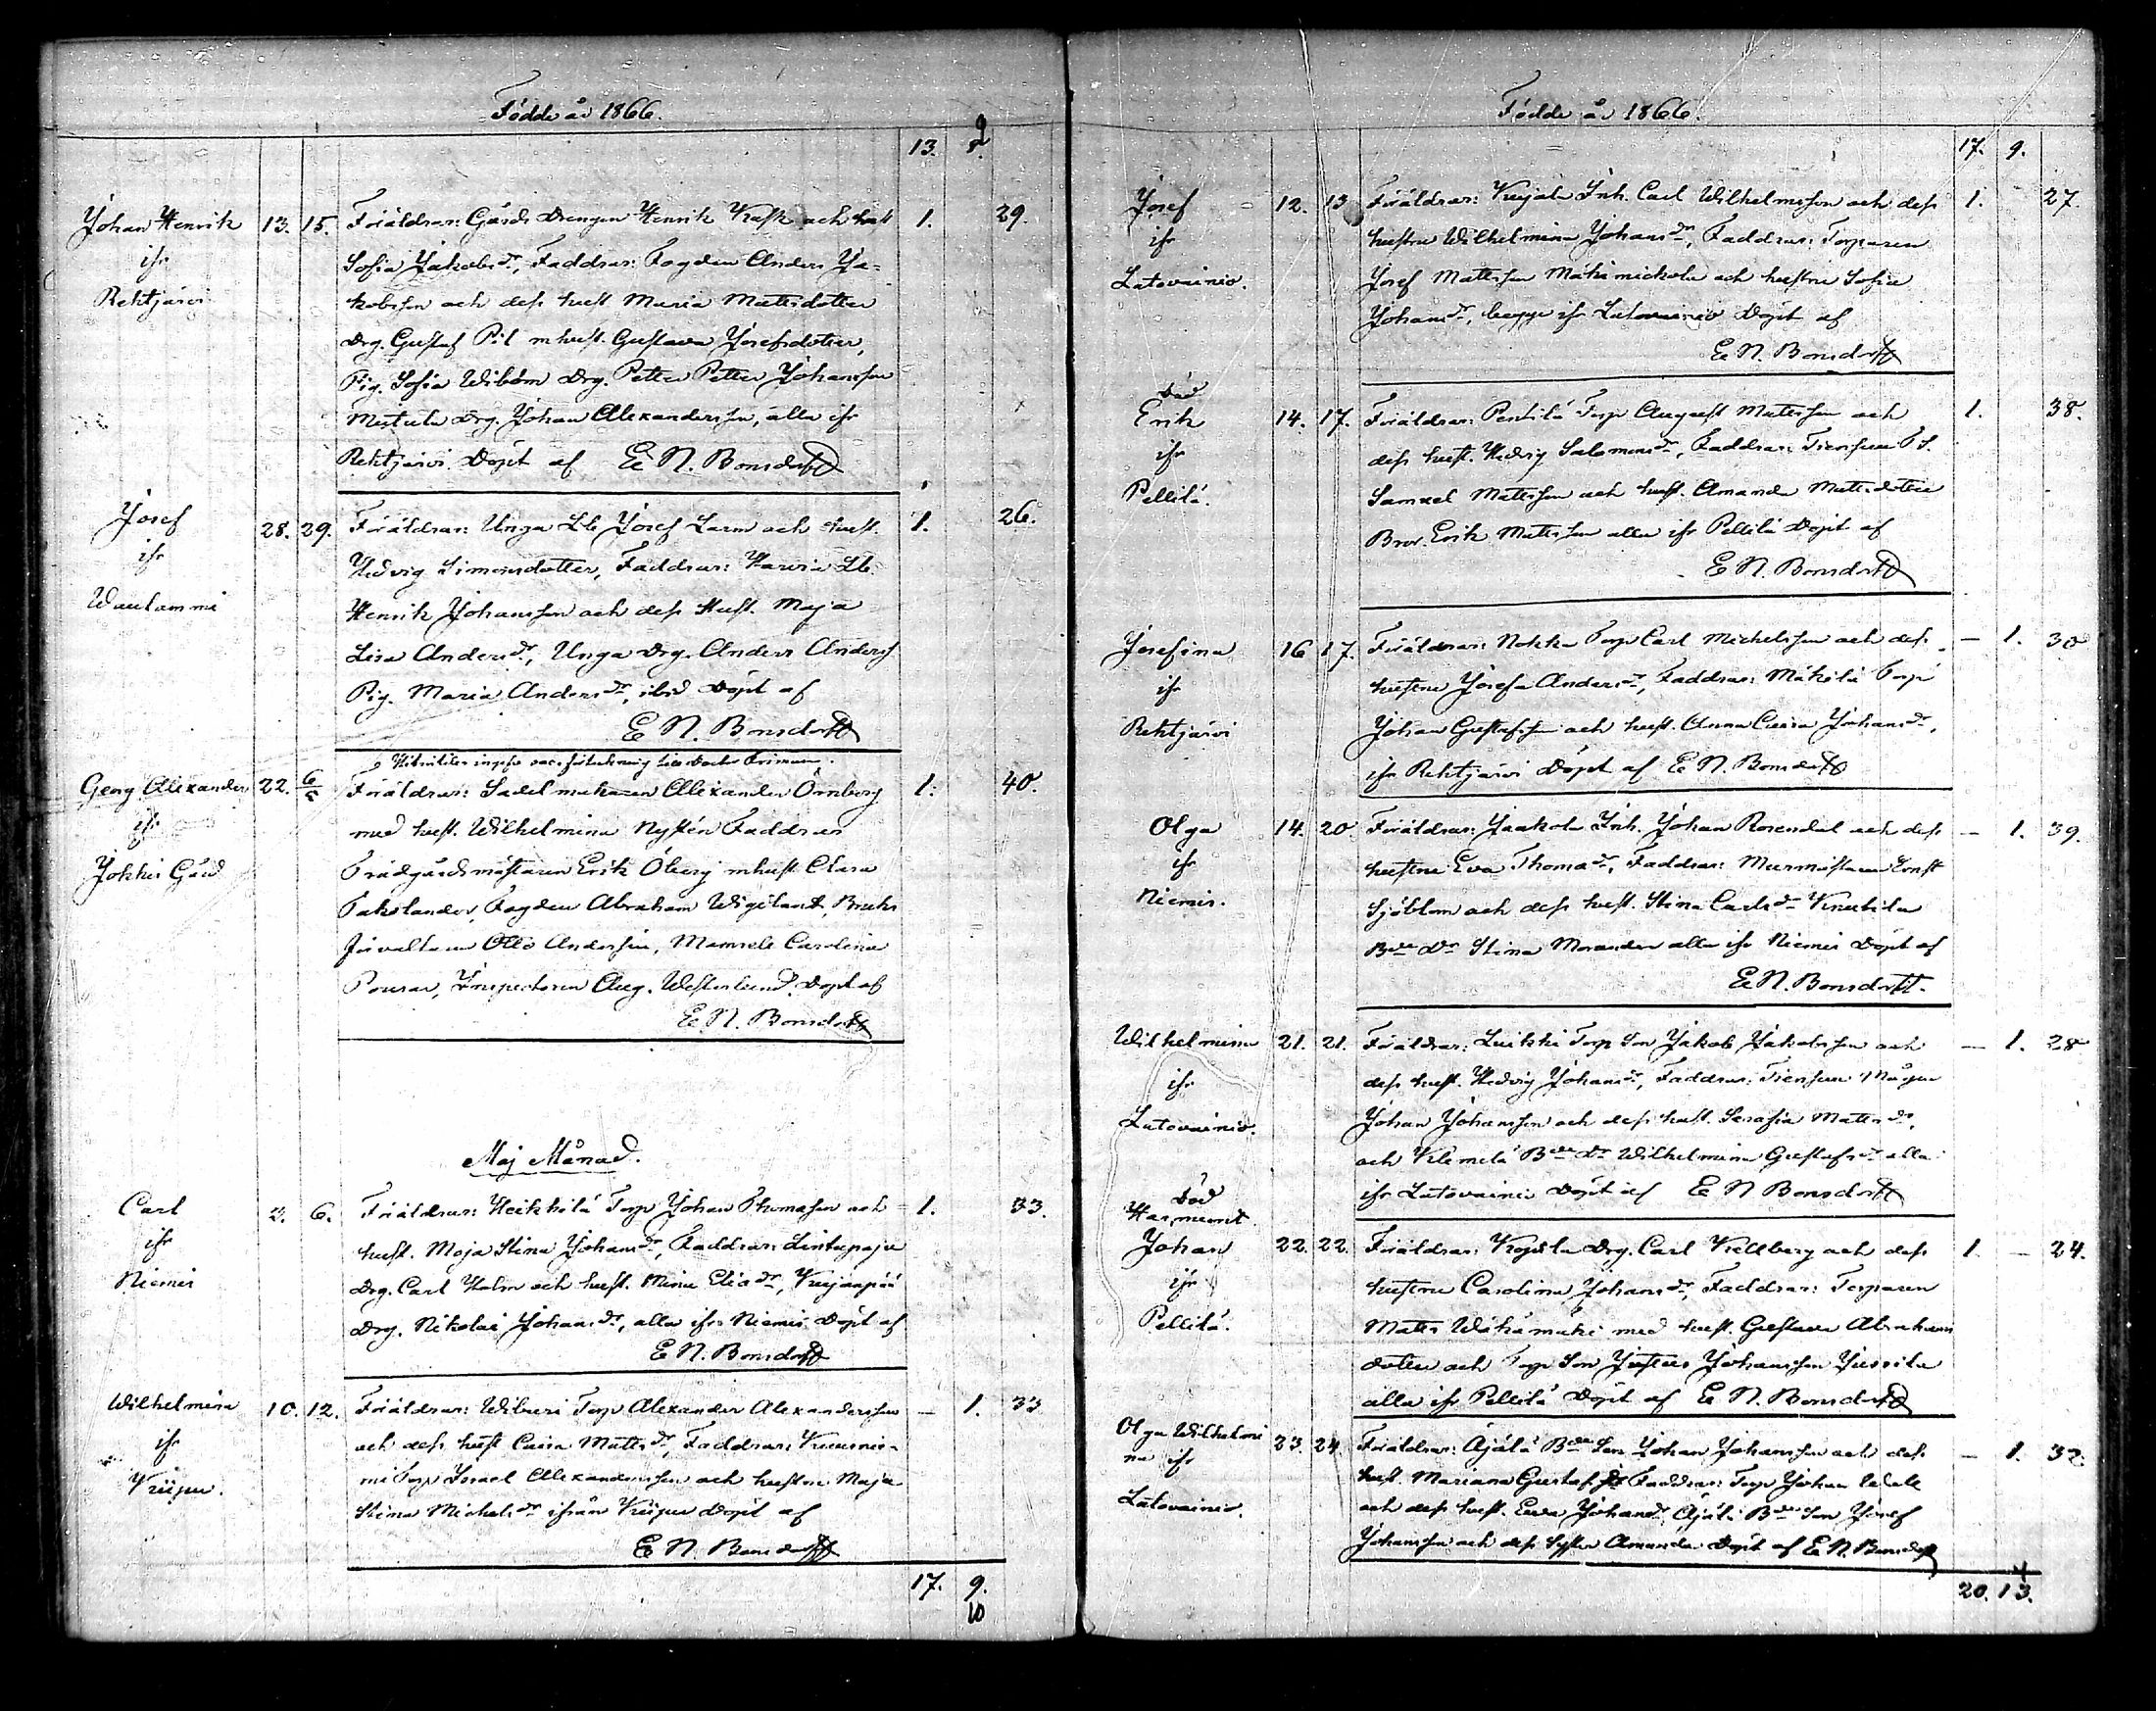 Födde år 1866.
13. 9
Johan Henrik 13. 15. Föräldrar: Gårds Drengen Henrik Kask och hust 1. 29.
ifr Sofia Jakobs dr, Faddrar: Fogden Anders Ja-
Rehtjärvi kobsson och dess hust Maria Mattsdotter
Drg. Gustaf Pil m hust. Gustava Josefsdotter,
Pig. Sofia Wibom Drg. Petter Petter Johansson
Mistula Drg. Johan Alexandersson, alla ifr
Rehtjärvi Döpt af E N. Bonsdorff
Josef 28. 29. Föräldrar: Unga Lb Josef Larm och hust. 1. 26.
ifr Hedvig Simonsdotter, Faddrar: Harvia Lb.
Wuultammi Henrik Johansson och dess Hust. Maja
Lisa Anders dr, Unga Drg. Anders Anderss
Pig. Maria Anders dr, ibid Döpt af
E N. Bonsdorff
Georg Alexander 22. 6/5 Föräldrar: Sadelmakaren Alexander Örnberg 1. 40.
ifr med hust. Wilhelmina Nystén Faddrar
Jokkis Gård Trädgårdsmästaren Erik Öberg m hust Clara
Fogden Abraham Wigelant, Bruks
förvaltaren Otto Andersin, Mamsele Carolina
Inspectoren Aug. Westerlund. Döpt af
E. N. Bonsdorff
Maj Månad.
Carl 3. 6. Föräldrar: Heikkilä Torp Johan Thomasson och 1. 33.
ifr hust. Maja Stina Johans dr, Faddrar: Lintupaju
Niemis Drg. Carl Holm och hust. Mina Elia dr, Kujanpää
Drg. Nikolai Johans dr, alla ifr Niemis Döpt af
E N. Bonsdorff
Wilhelmina 10. 12. Föräldrar: Wiluri Torp Alexander Alexandersson — 1. 33
ifr och dess hust Caisa Matts dr, Faddrar: Kuusnie-
Kiipu. mi Torp Israel Alexandersson och hustru Maja
Stina Michels dr ifrån Kiipu Döpt af
E N. Bonsdorff
17. 9.
10
Födde år 1866.
17. 9.
Josef 12. 13 Föräldrar: Kujala Inh. Carl Wilhelmsson och dess 1. 27.
ifr hustru Wilhelmina Johans dr, Faddrar: Torparen
Latovainio. Josef Mattsson Mäkinickola och hustru Sofia
Johans dr, begge ifr Latovainio Döpt af
E N. Bonsdorff
Död
Erik 14. 17. Föräldrar: Pentilä Torp August Mattsson och 1. 38.
ifr dess hust. Hedvig Salomons dr, Faddrar: Tiensuu T S.
Pellilä. Samuel Mattsson och hust. Amanda Mattsdotter
Bror. Erik Mattsson alla ifr Pellilä Döpt af
E N. Bonsdorff
Josefina 16 17. Föräldrar: Nokka Torp Carl Michelsson och dess — 1. 30
ifr hustru Josefa Anders dr, Faddrar: Mäkilä Torp
Rehtjärvi Johan Gustafsson och hust. Anna Caisa Johans dr,
ifr Rehtjärvi Döpt af E N. Bonsdorff
Olga 14. 20 Föräldrar: Jaakola Inh. Johan Rosendal och dess — 1. 39.
ifr hustru Eva Thoma dr, Faddrar: Murmästaren Ernst
Niemis. Sjöblom och dess hust. Stina Carls dr Knuutila
Bde Dr Stina Morander alla ifr Niemis Döpt af
E N. Bonsdorff.
Wilhelmina 21. 21. Föräldrar: Luikki Torp Son Jakob Jakobsson och — 1. 28
ifr dess hust. Hedvig Johans dr, Faddrar: Tiensuu Mågen
Latovainio. Johan Johansson och dess hust. Serafia Matts dr,
och Klemelä Bde Dr Wilhelmina Gustafs dr alla
ifr Latovainio Döpt af E N Bonsdorff
Död
Johan 22. 22. Föräldrar: Kojola Drg. Carl Kellberg och dess 1. — 24.
ifr hustru Carolina Johans dr, Faddrar: Torparen
Pellilä. Matts Wähämäki med hust. Gustava Abrahams
dotter och Torp Son Justus Johansson Jussila
alla ifr Pellilä Döpt af E N. Bonsdorff
Olga Wilhelmi 23. 24 Föräldrar: Äjälä Bde Son Johan Johansson och dess — 1. 32.
na ifr hust. Mariana Gustaf dr Faddrar: Torp Johan
Latovainio. och dess hust. Eva Johans dr, Äjälä Bde Son Josef
Johansson och dess Syster Amanda Döpt af E N. Bonsdorff
4
20. 13.